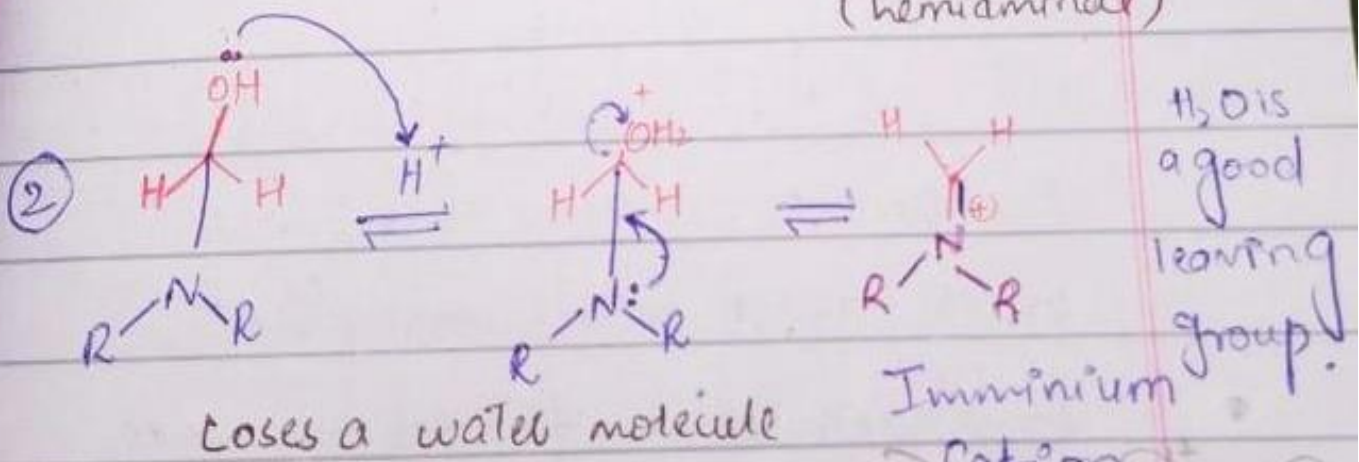 (hemiaminal)
OH
H H
② H+
N
R R
+
OH2
H H
N:
R R
H H
⊕
N
R R
H2O is
a good
leaving
group.
Loses a water molecule
Imminium
Cation